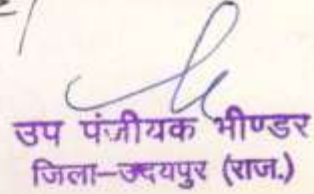 उप पंजीयक भीण्डर
जिला-उदयपुर (राज.)